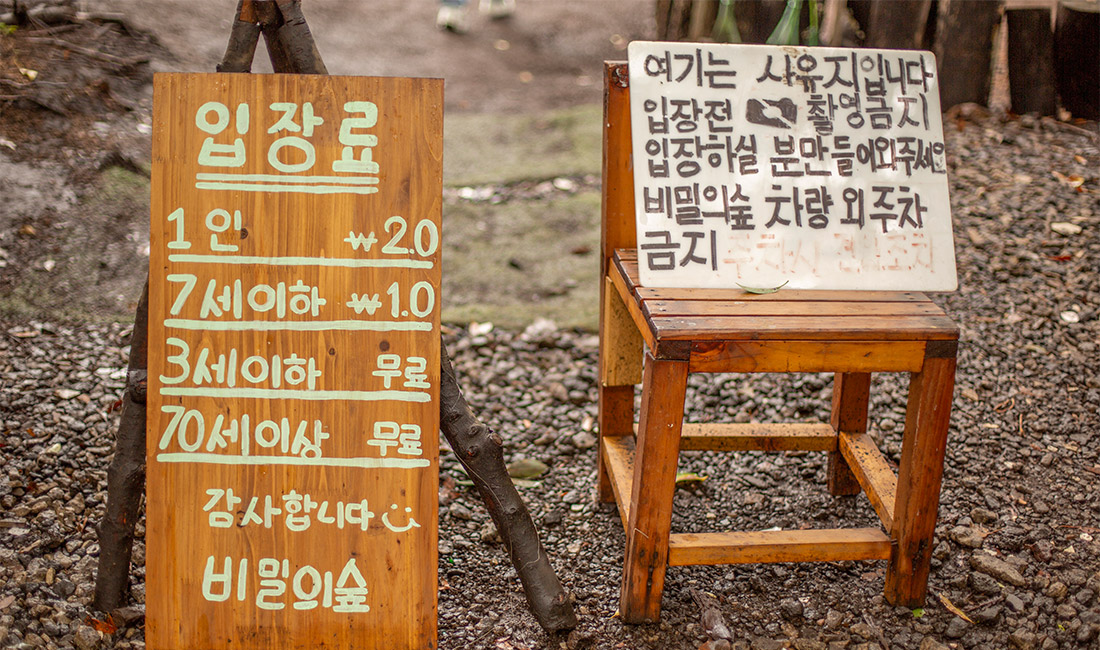 입장료
1인 ₩2.0
7세이하 ₩1.0
3세이하 무료
70세이상 무료
감사합니다
비밀의숲
여기는 사유지입니다
입장전 촬영금지
입장하실 분만들어와주세요
비밀의숲 차량외주차
금지